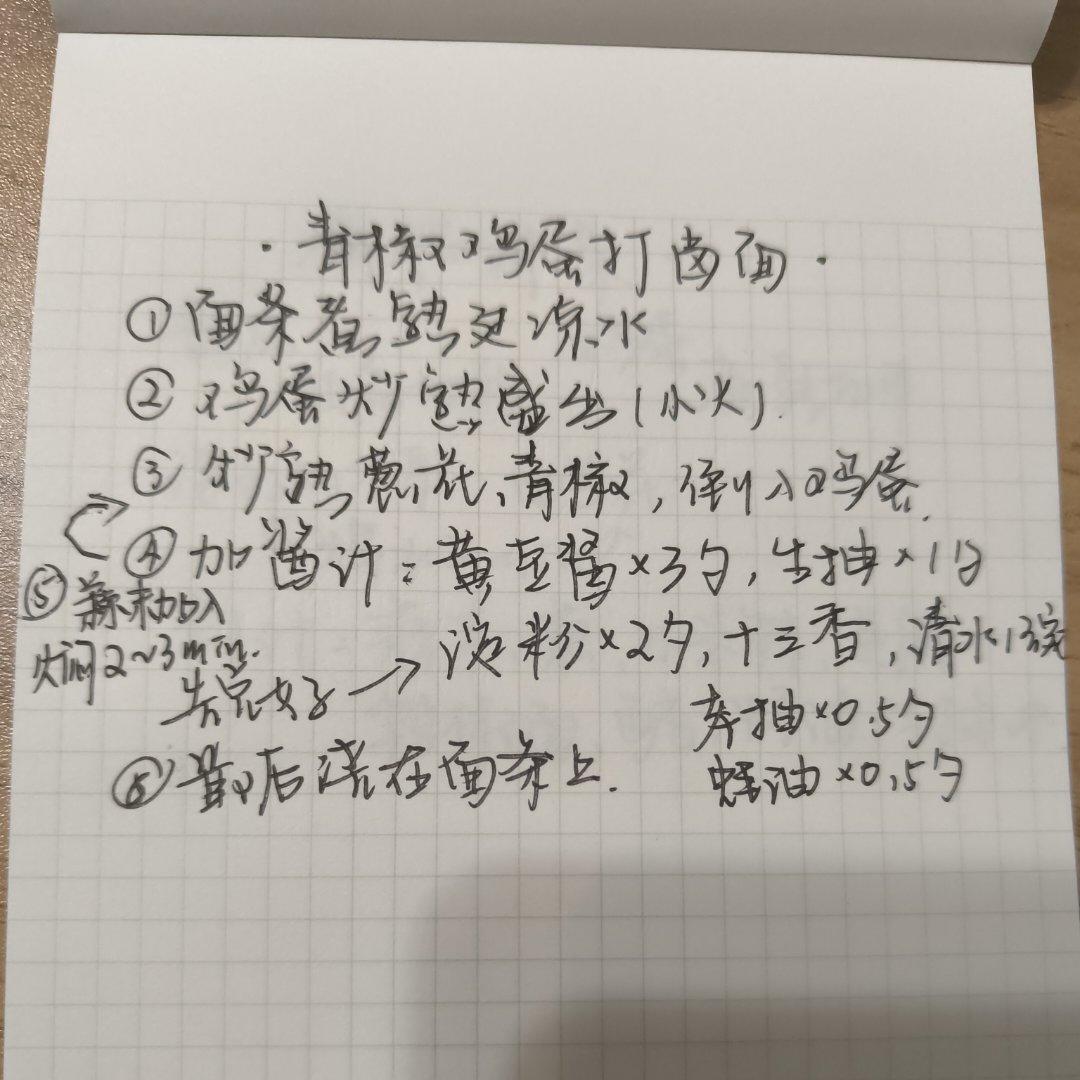 ·青椒鸡蛋打卤面·
①面条煮熟过凉水
②鸡蛋炒熟盛出(小火).
③炒熟葱花、青椒,倒入鸡蛋.
④加酱汁:黄豆酱×3勺,生抽×1勺
淀粉×2勺,十三香,清水1碗
老抽×0.5勺
蚝油×0.5勺
⑤蒜末加入
焖2~3min.
先完好
⑥最后浇在面条上.